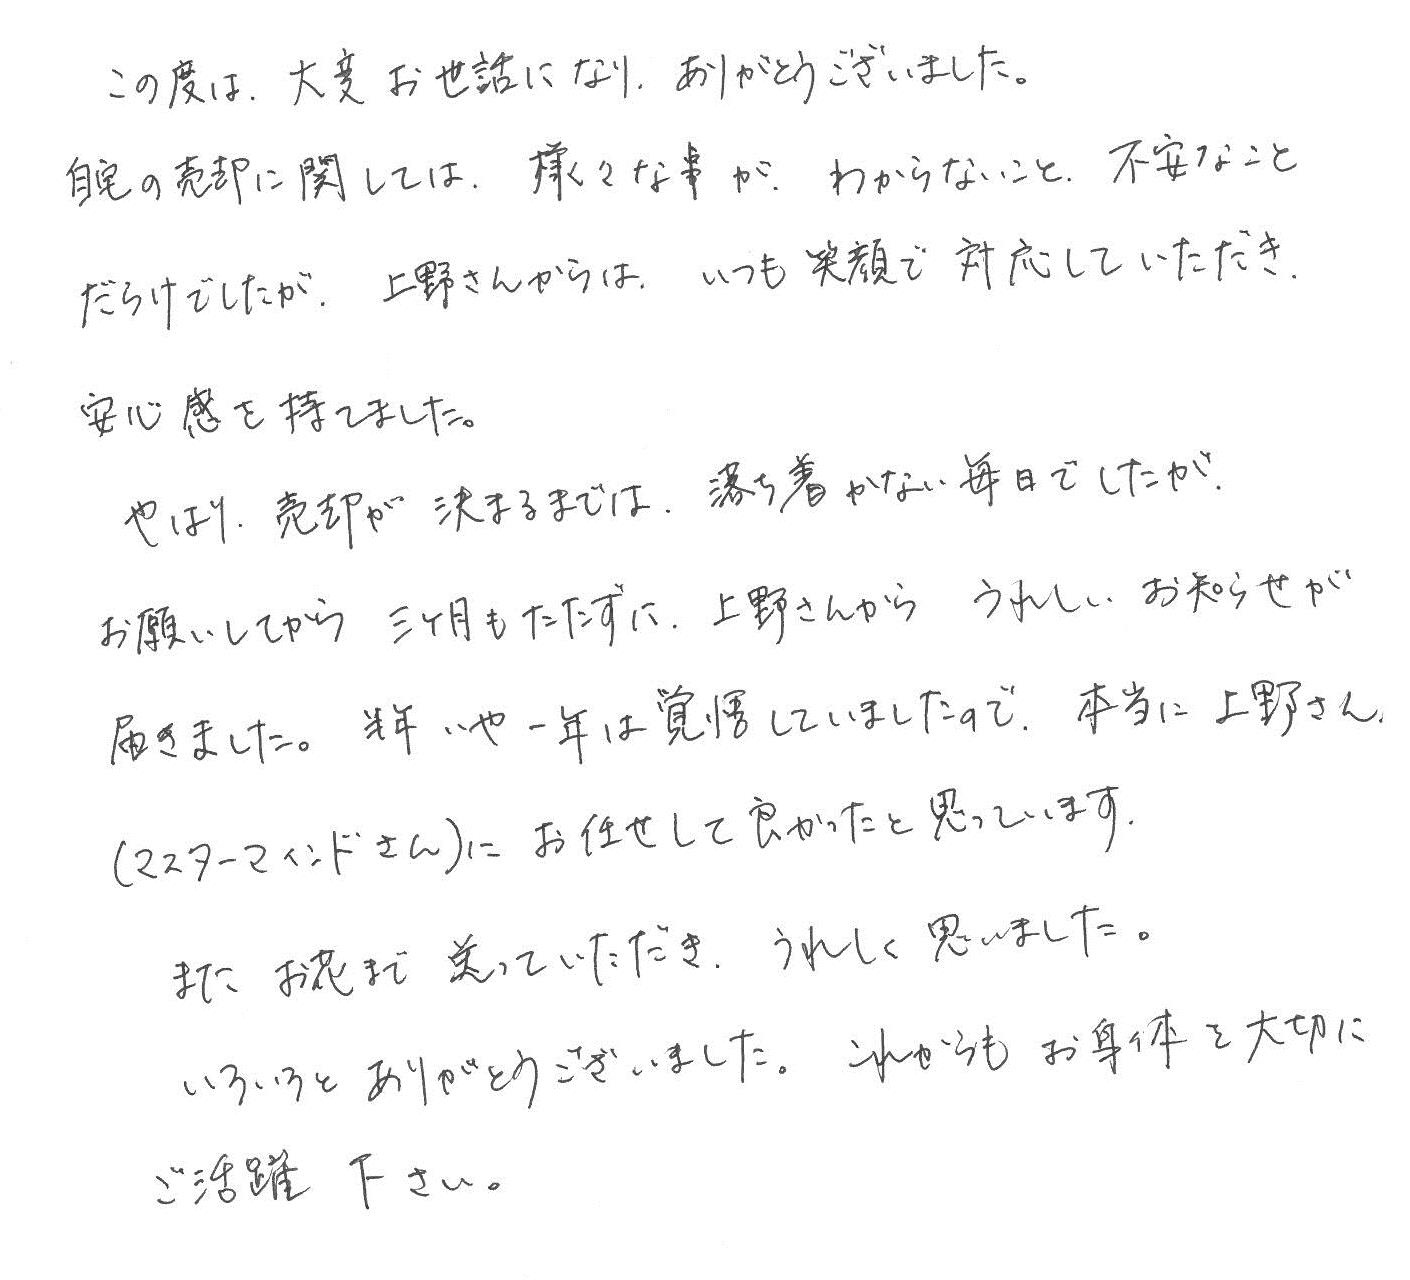 この度は、大変お世話になり、ありがとうございました。
自宅の売却に関しては、様々な事が、わからないこと、不安なこと
だらけでしたが、上野さんからは、いつも笑顔で対応していただき、
安心感を持てました。
やはり、売却が決まるまでは、落ち着かない毎日でしたが、
お願いしてから三ヶ月もたたずに、上野さんからうれしいお知らせが
届きました。半年いや一年は覚悟していましたので、本当に上野さん、
(マスターマインドさん)にお任せして良かったと思っています。
またお花まで送っていただき、うれしく思いました。
いろいろとありがとうございました。これからもお身体を大切に
ご活躍下さい。